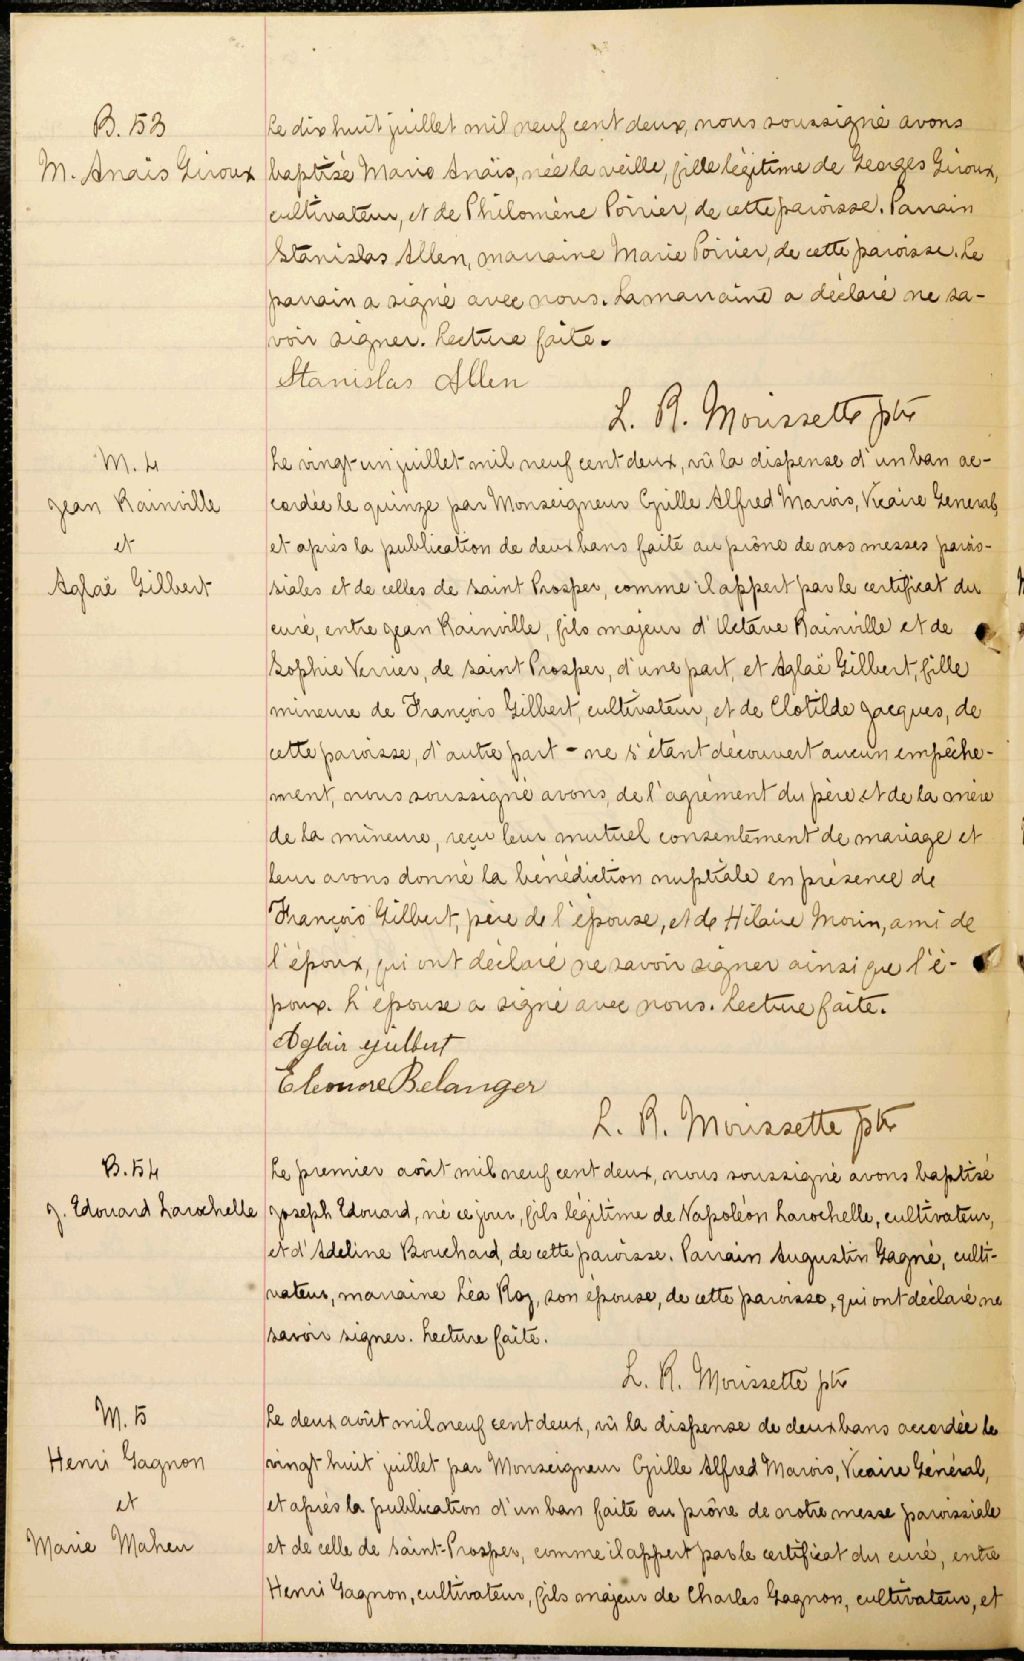 B. 53
M. Anaïs Giroux
Le dix huit juillet mil neuf cent deux, nous soussigné avons
baptisé Marie Anaïs, née la veille, fille légitime de Georges Giroux,
cultivateur, et de Philomène Poirier, de cette paroisse. Parrain
Stanislas Allen, marraine Marie Poirier, de cette paroisse. Le
parrain a signé avec nous. La marraine a déclaré ne sa-
voir signer. Lecture faite.
Stanislas Allen
L. R. Morissette ptr
M. 4
Jean Rainville
et
Aglaé Gilbert
Le vingt-un juillet mil neuf cent deux, vû la dispense d'un ban ac-
cordée le quinze par Monseigneur Cyrille Alfred Marois, Vicaire General,
et après la publication de deux bans faite au prône de nos messes parois-
siales et de celles de Saint Prosper, comme il appert par le certificat du
curé, entre Jean Rainville, fils majeur d'Octave Rainville et de
Sophie Verrier, de Saint Prosper, d'une part, et Aglaë Gilbert, fille
mineure de François Gilbert, cultivateur, et de Clotilde Jacques, de
cette paroisse, d'autre part - ne s'étant découvert aucun empêche-
ment, nous soussigné avons, de l'agrément du père et de la mère
de la mineure, reçu leur mutuel consentement de mariage et
leur avons donné la bénédiction nuptiale en présence de
François Gilbert, père de l'épouse, et de Hilaire Morin, ami de
l'époux, qui ont déclaré ne savoir signer ainsi que l'é-
poux. L'épouse a signé avec nous. Lecture faite.
Aglair gilbert
Eleonore Belanger
L. R. Morissette ptr
B. 54
J. Edouard Larochelle
Le premier août mil neuf cent deux, nous soussigné avons baptisé
Joseph Edouard, né ce jour, fils légitime de Napoléon Larochelle, cultivateur,
et d'Adeline Bouchard, de cette paroisse. Parrain Augustin Gagné, culti-
vateur, marraine Léa Roy, son épouse, de cette paroisse, qui ont déclaré ne
savoir signer. Lecture faite.
L. R. Morissette ptr
M. 5
Henri Gagnon
et
Marie Maheu
Le deux août mil neuf cent deux, vû la dispense de deux bans accordée le
vingt huit juillet par Monseigneur Cyrille Alfred Marois, Vicaire Général,
et après la publication d'un ban faite au prône de notre messe paroissiale
et de celle de Saint-Prosper, comme il appert par le certificat du curé, entre
Henri Gagnon, cultivateur, fils majeur de Charles Gagnon, cultivateur, et